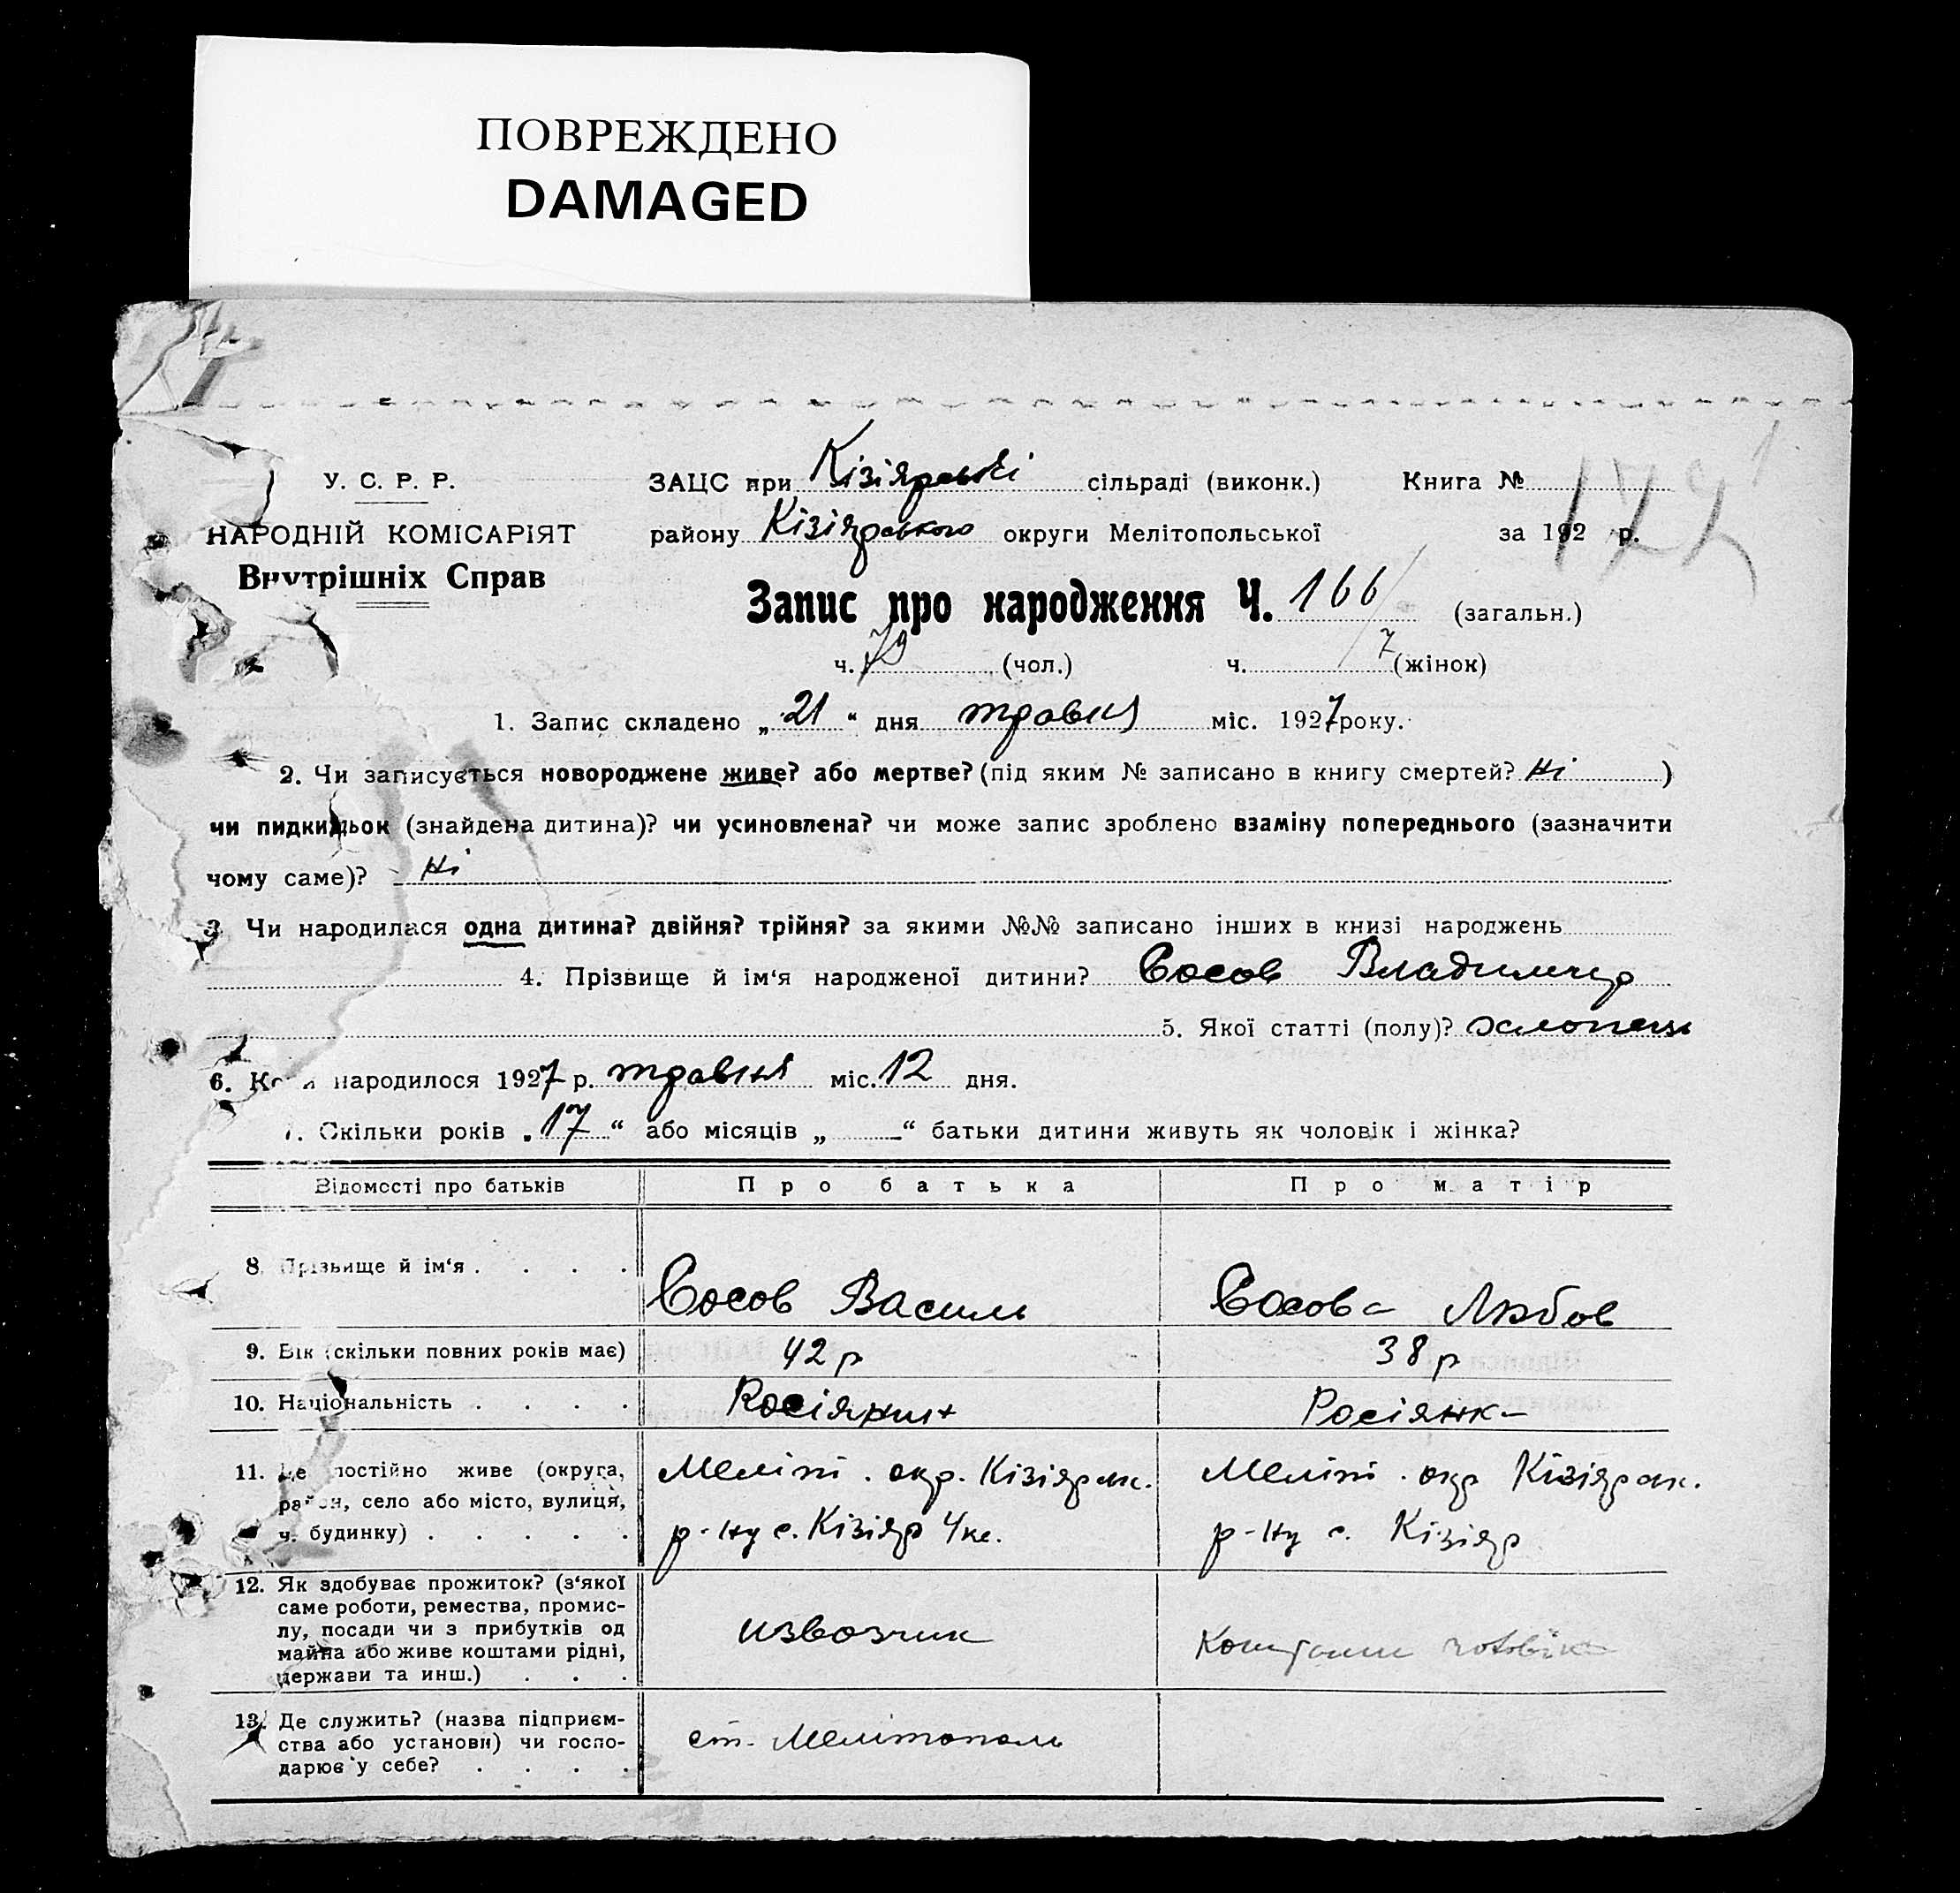 ПОВРЕЖДЕНО
DAMAGED
У. С. Р. Р.
НАРОДНІЙ КОМІСАРІЯТ
Внутрішніх Справ
ЗАЦС при Кізіярській сільраді (виконк.) Книга №
району Кізіярського округи Мелітопольської за 192 р.
Запис про народження Ч. 166 (загальн.)
ч. 79 (чол.) ч. (жінок)
1. Запис складено „21“ дня травня міс. 1927 року.
2. Чи записується новороджене живе? або мертве? (під яким № записано в книгу смертей? Ні )
чи пидкидьок (знайдена дитина)? чи усиновлена? чи може запис зроблено взаміну попереднього (зазначити
чому саме)? Ні
3 Чи народилася одна дитина? двійня? трійня? за якими №№ записано інших в книзі народжень
4. Прізвище й ім‘я народженої дитини? Сосов Владимир
5. Якої статті (полу)? хлопець
6. Коли народилося 1927 р. травня міс. 12 дня.
7. Скільки років „17“ або місяців „ “ батьки дитини живуть як чоловік і жінка?
Відомості про батьків Про батька Про матір
8. Прізвище й ім‘я . . . . Сосов Василь Сосова Любов
9. Вік (скільки повних років має) 42 р 38 р
10. Національність . . . . Росіянин Росіянка
11. Де постійно живе (округа,
район, село або місто, вулиця,
ч. будинку) . . . . .
Меліт. окр. Кізіярск.
р-ну с. Кізіяр
Меліт. окр Кізіярск.
р-ну с. Кізіяр
12. Як здобуває прожиток? (з‘якої
саме роботи, ремества, промис-
лу, посади чи з прибутків од
майна або живе коштами рідні,
держави та инш.) . . .
извозчик
Коштами
13. Де служить? (назва підприєм-
ства або установи) чи госпо-
дарює у себе? . . . .
ст. Мелітополь